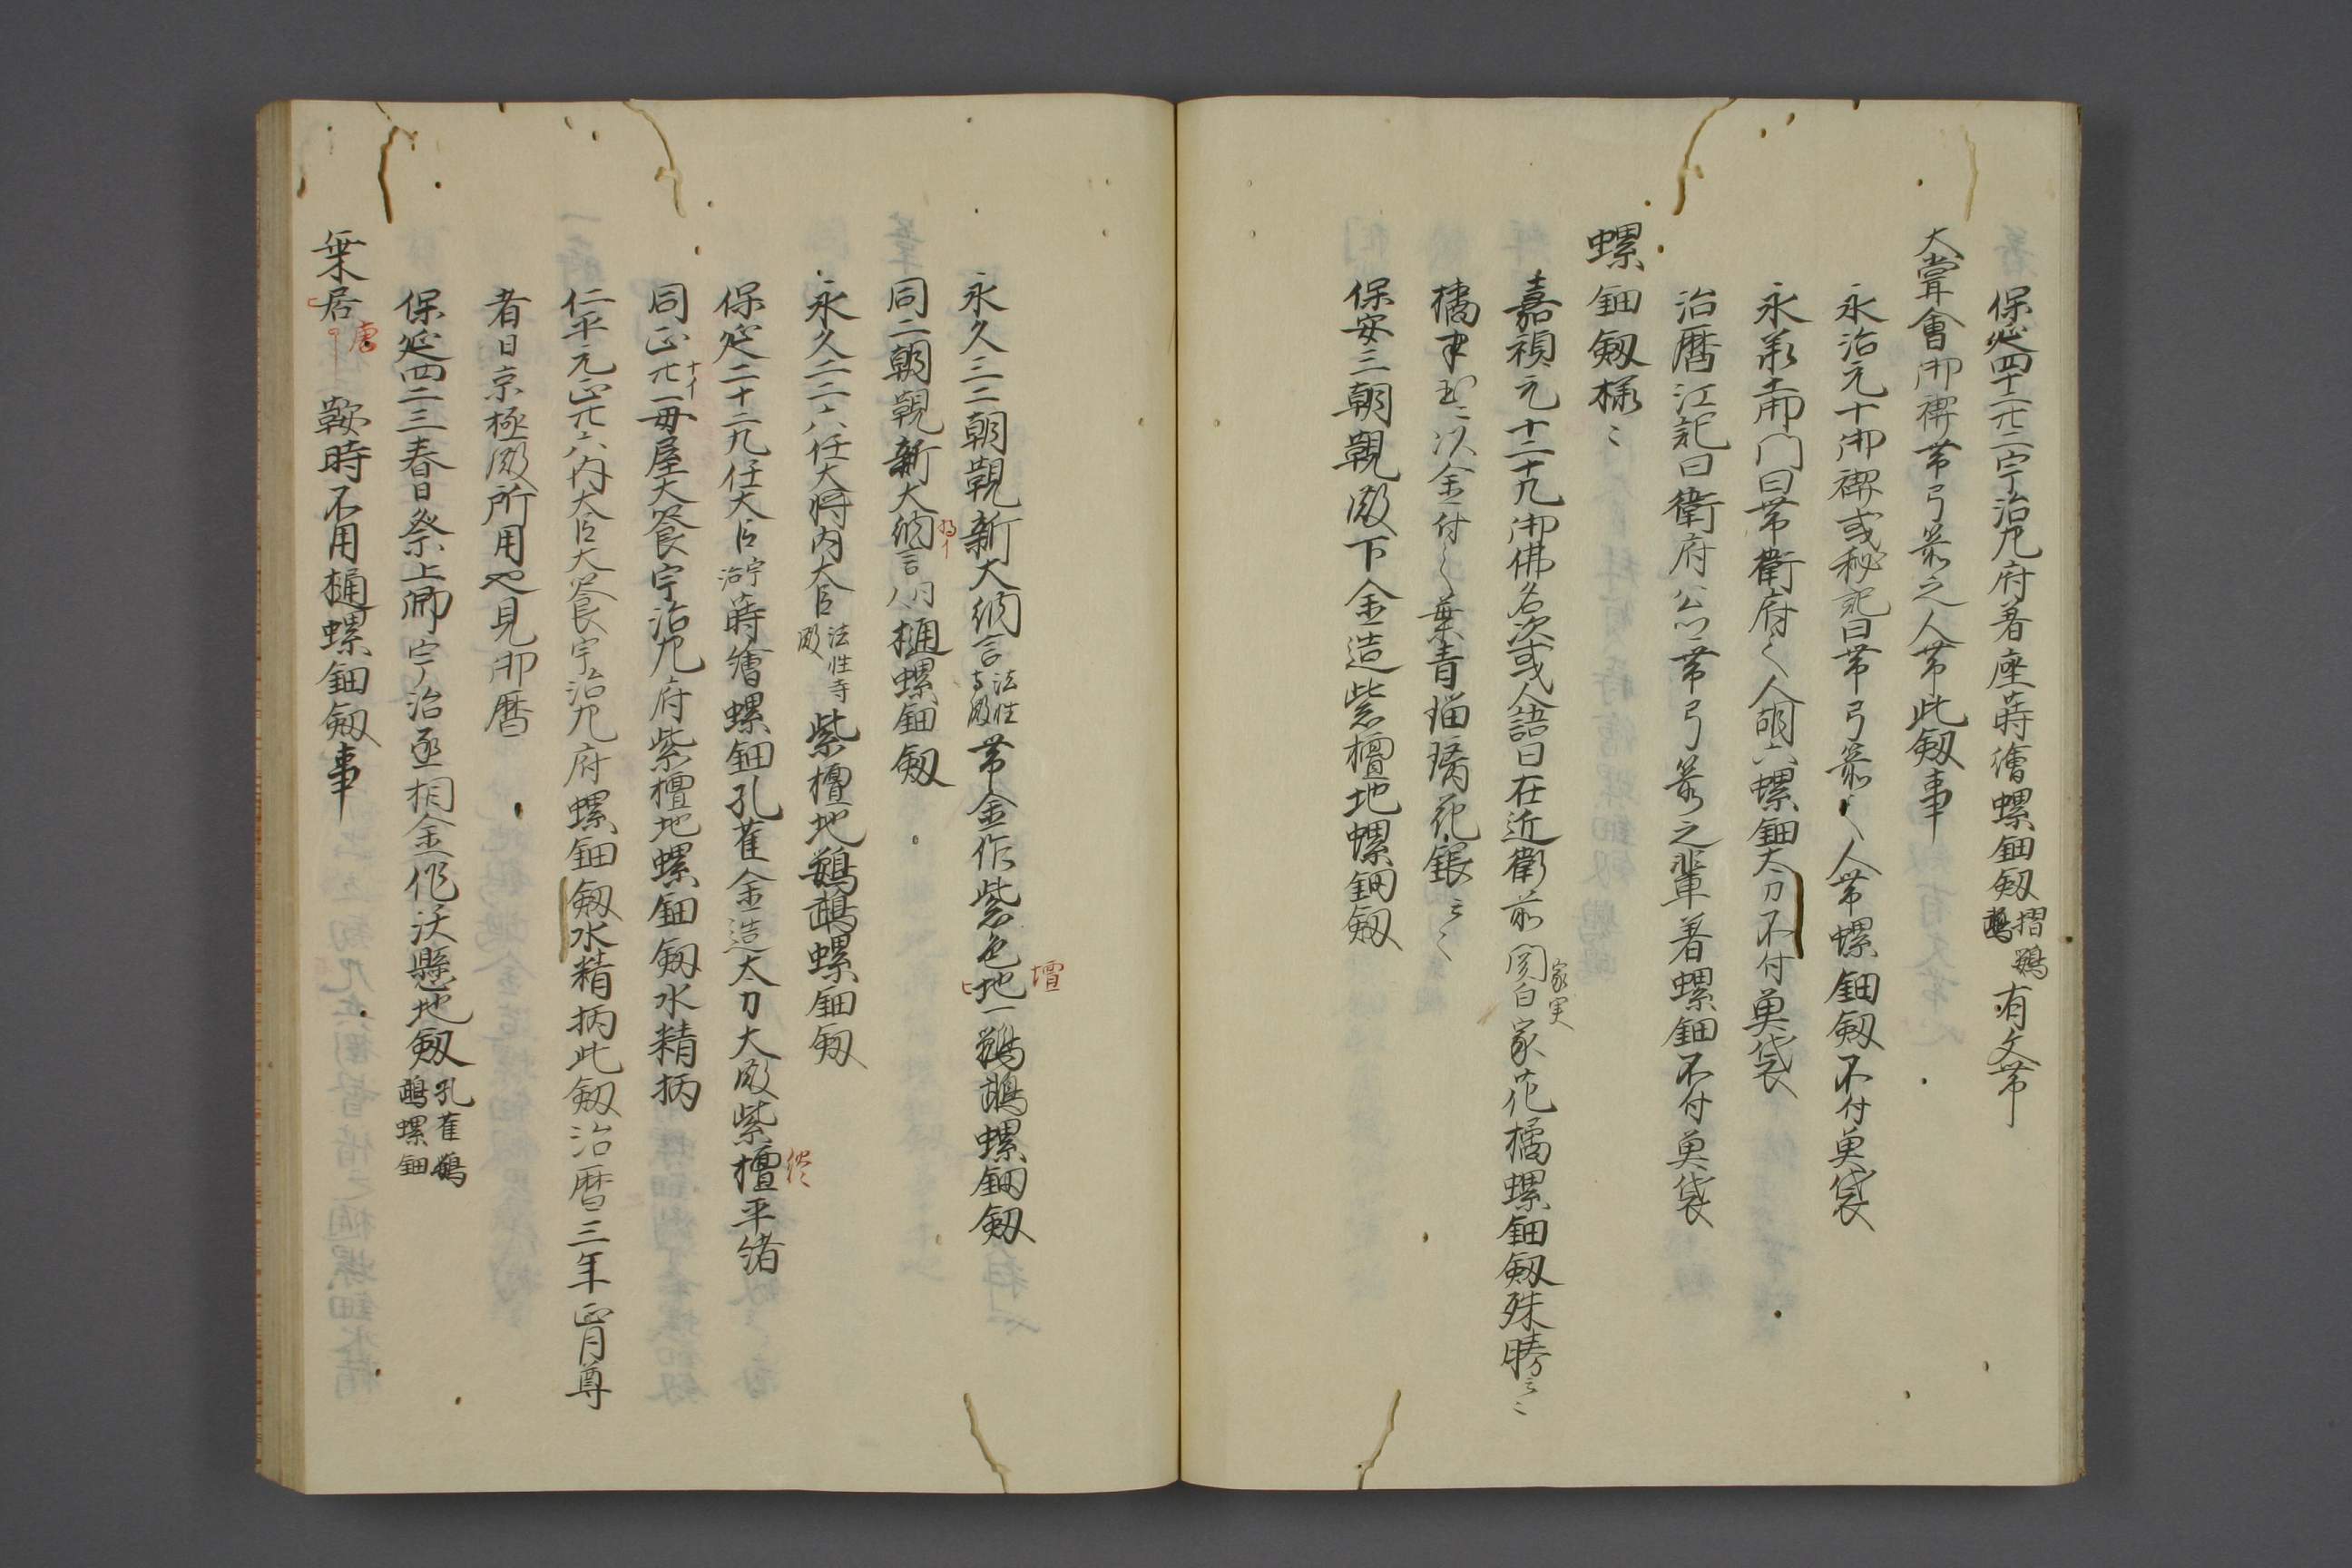 保延四十二廿二宇治左府著座蒔絵螺鈿釼摺鸚鵡有文帯
大嘗會御禊帯弓箭之人帯此釼事
永治元十御禊或秘記曰帯弓箭之人帯螺鈿釼不付魚袋
永承土御門曰帯衛府之人螺鈿太刀不付魚袋
治暦江記曰衛府公帯弓箭之輩著螺鈿不付魚袋
螺鈿釼様々
嘉禎元十二十九御佛名次或人語曰在近衛前関白家実家花橘螺鈿釼殊勝云々
橘以金付之葉青瑠璃花銀云々
保安三朝覲殿下金造紫檀地螺鈿釼
永久二二朝覲新大納言法性寺殿帯金作紫色地檀鸚鵡螺鈿釼
同二朝覲新大納言樋螺鈿釼
永久二二六任大将内大臣法性寺殿紫檀地鸚鵡螺鈿釼
保延二十二九任大臣宇治蒔繪螺鈿孔雀金造太刀大殿紫檀平緒
同正廿一十イ母屋大饗宇治左府紫檀地螺鈿釼水精柄
仁平元正廿六内大臣大饗宇治左府螺鈿釼水精柄此釼治暦三年正月尊
者日京極殿所用也見御暦
保延四二三春日祭上卿宇治丞相金作沃懸地釼孔雀鸚鵡螺鈿
乗居唐鞍時不用樋螺鈿釼事